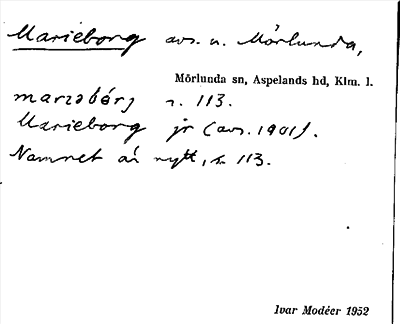 Marieborg avs. u. Mörlunda,
Mörlunda sn, Aspelands hd, Klm. l.
marɜəbórj s. 113.
Marieborg jr (avs. 1901).
Namnet är nytt, s. 113.
Ivar Modéer 1952